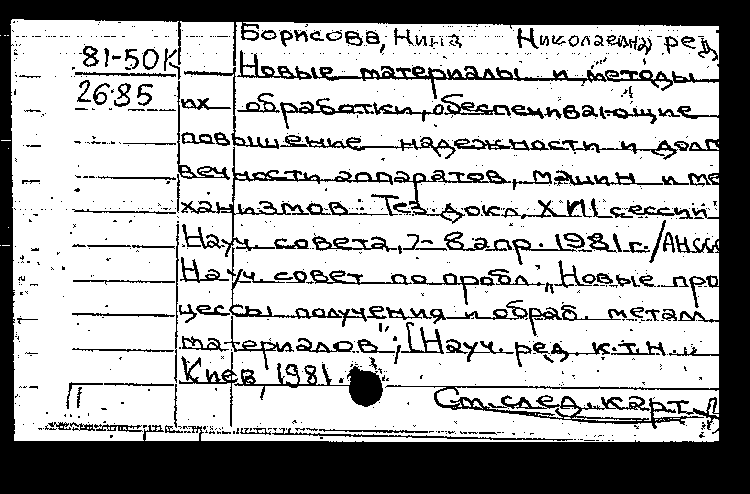 Борисова, Нина Николаевна, ред.
81-50К Новые материалы и методы
2685 их обработки, обеспечивающие
повышение надежности и долго
вечности аппаратов, машин и ме
ханизмов: Тез. докл. XVII сессии
Науч. совета, 7-8 апр. 1981 г. / АН СССР
Науч. совет по пробл. „Новые про
цессы получения и обраб. металл.
материалов"; [Науч. ред. к.т.н. ..
Киев, 1981.
11 См. след. карт.